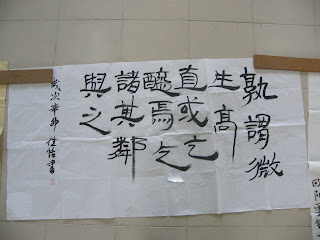 孰謂微
生高
直或乞
醯焉乞
諸其鄰
與之
歲次辛卯 書